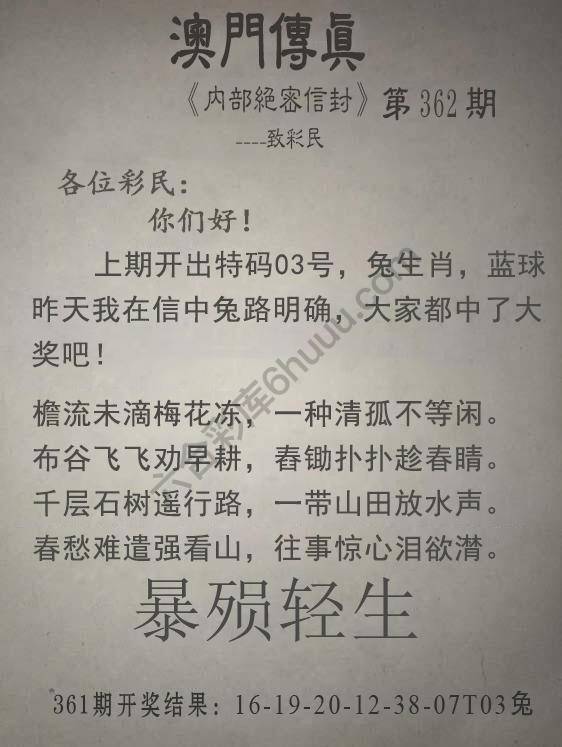 澳門傳真
《内部絕密信封》第362期
----致彩民
各位彩民：
你们好！
上期开出特码03号，兔生肖，蓝球
昨天我在信中兔路明确，大家都中了大
奖吧！
檐流未滴梅花冻，一种清孤不等闲。
布谷飞飞劝早耕，舂锄扑扑趁春睛。
千层石树遥行路，一带山田放水声。
春愁难遣强看山，往事惊心泪欲潸。
暴殒轻生
361期开奖结果：16-19-20-12-38-07T03兔
六合彩库6huuu.com